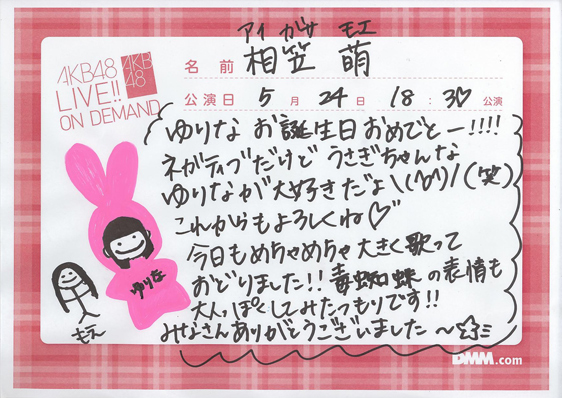 アイ ガサ モエ
AKB48
LIVE!!
ON DEMAND
AKB
48
名前 相笠 萌
公演日 5月 24日 18:30 公演
ゆりな お誕生日おめでとー!!!!
ネガティブだけど うさぎちゃんな
ゆりなが大好きだよ\(^^)/(笑)
これからもよろしくね♡
今日もめちゃめちゃ大きく歌って
おどりました!! 毒蜘蛛の表情も
大人っぽくしてみたつもりです!!
みなさんありがとうございました〜☆ミ
ゆりな
もえ
DMM.com